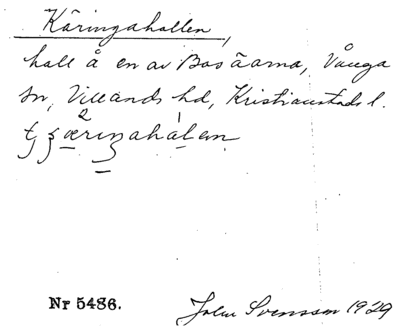 Käringahallen,
hall å en av Bosöarna, Vånga
sn, Villands hd, Kristianstads l.
Nr 5486. John Svensson 1929